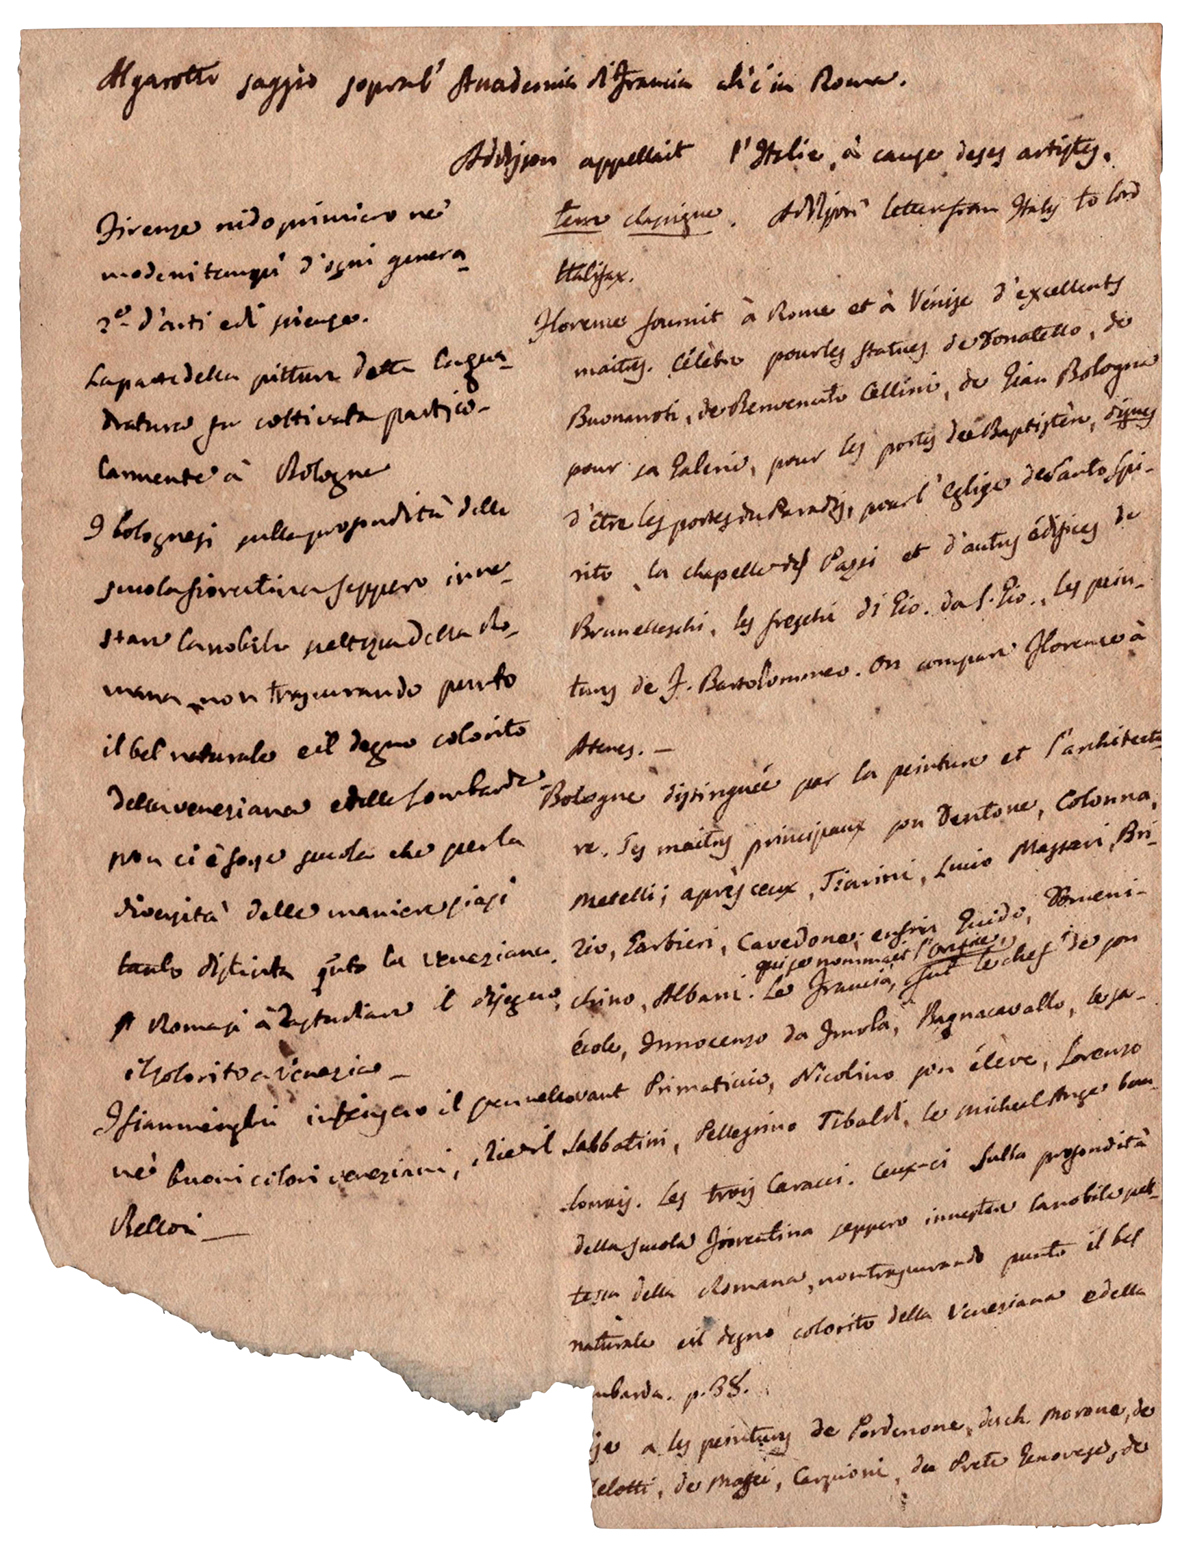 Algarotti saggio sopra l' Accademia di Francia ch'è in Roma.
Addisson appellait l'Italie, à cause de ses artistes,
terre classique. Addison's letter from Italy to lord
Halifax.
Firenze nido primiero ne'
moderni tempi d'ogni genera
ne d'arti e di scienze.
La parte della pittura detta
fu coltivata partico-
larmente à Bologna
I bolognesi sulla profondità della
scuola fiorentina seppero inne-
stare la nobile sveltezza della Ro-
mana, non trascurando punto
il bel naturale e il degno colorito
della veneziana e della Lombarda
non ci è forse scuola che per la
diversità delle maniere siasi
tanto distinta qto la veneziana.
Romasi à da studiare il disegno,
il colorito a Venezia—
I fiamminghi intingero il pennello
ne' buoni colori veneziani, dice il
Bellori—
Florence fournit à Rome et à Venise d'excellents
maitres. Célèbre pour les statues de Donatello, de
Buonaroti, de Benvenuto Cellini, de Gian Bologna
pour sa Galerie, pour les portes de Baptistère, dignes
d'être les portes du Paradis, pour l'eglise de Santo Spi-
rito, la chapelle des Pazzi et d'autres édifices de
Brunelleschi, les freschi di Gio. da S. Gio., les pein-
tures de F. Bartolommeo. On compare Florence à
Atenes.—
Bologne distinguée par la peinture et l'architectu
re. Ses maitres principaux son Dentone, Colonna,
Metelli; après ceux, Tiarini, Lucio Massari, Bri-
zio, Garbieri, Cavedone, enfin Guido, Domeni-
chino, Albani. Le Francia, qui se nommait l'orfèvre, fut le chef de son
école, Innocenzo da Imola, Bagnacavallo, le sa-
vant Primaticcio, Nicolino son élève, Lorenzo
Sabbatini, Pellegrino Tibaldi, le Michel Ange bou-
lonnois. Les trois Caracci. Ceux-ci sulla profondità
della scuola fiorentina seppero innestar la nobile svel-
tezza della Romana, non trascurando punto il bel
naturale e il degno colorito della Veneziana e della
mbarda. p. 38.
a les peintures de Pordenone, du ch. Morone, de
Celotti, de Maffei, Carpioni, du Prete Genovese, de